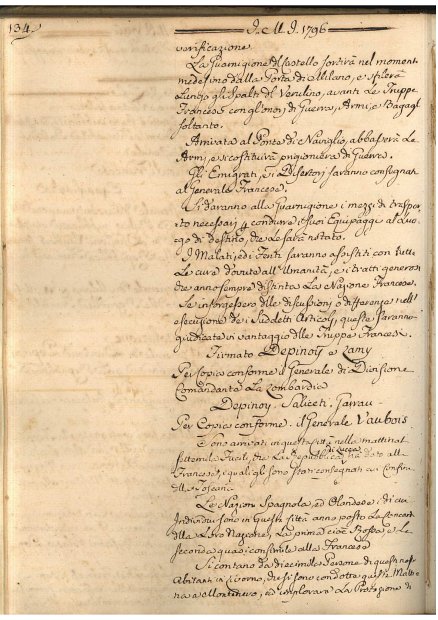 134.
J. M. J. 1796
verificazione
La Guarnigione del Castello sortirà nel moment
medesimo dalla Porta di Milano, e sfilerà
lungo gli Spalti del Verulino, avanti le Truppe
Francesi con gl'onori di Guerra, Armi, e Bagagl
soltanto.
Arrivata al Ponte di Naviglio, abbasserà le
Armi, e si costituirà prigioniera di Guerra.
Gli Emigrati, e i Disertori saranno consegnati
al Generale Francese.
Si daranno alla Guarnigione i mezzi di traspor
to necessarj p condurre i suoi Equipaggi al Luo
go di destino, che le sarà notato.
I Malati, ed i Feriti saranno assistiti con tutte
le cure dovute all'Umanità, e i tratti generosi
che anno sempre distinta la Nazione Francese.
Se insorgessero delle discussioni o differenze nell'
esecuzione de i Suddetti Articoli, queste saranno
giudicate in vantaggio delle Truppe Francesi.
Firmato Depinoÿ e Lamy
Per Copia conforme il Generale di Divisione
Comandante la Lombardia
Depinoy. Saliceti. Garrau.
Per Copia conforme. il Generale Vaubois.
Sono arrivati in questa Città nella mattinat
settemila Fucili, che la Repubblica di Lucca ha dato alli
Francesi, i quali gli sono stati consegnati ai Confini
della Toscana
Le Nazioni Spagnola, ed Olandese i di cui
Individui sono in questa Città anno posto la
della Loro Nazione, la prima cioè Rossa e la
seconda quasi consimile alla Francese
Si contano da diecimila Persone di questi
Abitanti in Livorno, che si sono condotte questa Matti
na a Montenero, ad implorare la Protezione di